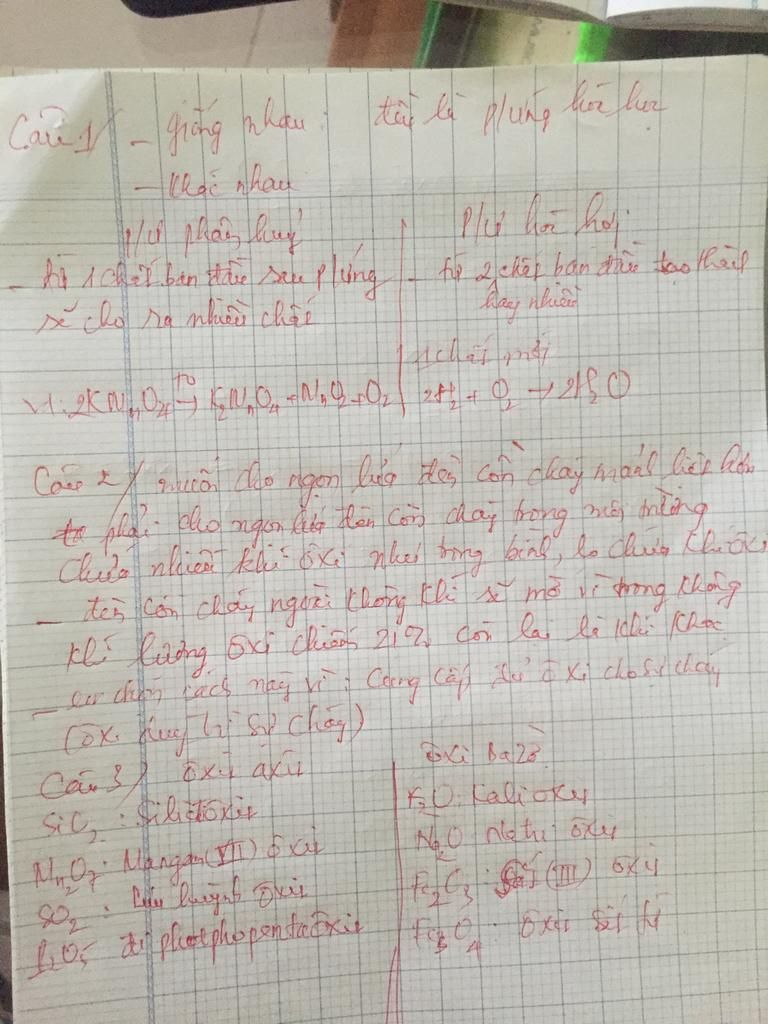 Câu 1/ - giống nhau: đều là p/ứng hóa học
- khác nhau
p/ứ phân huỷ
p/ứ hóa hợp
- từ 1 chất ban đầu sau p/ứng
sẽ cho ra nhiều chất
- từ 2 chất ban đầu tạo thành
hay nhiều
1 chất mới
VD: 2KMnO4 t° → K2MnO4 + MnO2 + O2
2H2 + O2 → 2H2O
Câu 2/ muốn cho ngọn lửa đèn cồn cháy mãnh liệt hơn
phải cho ngọn lửa đèn cồn cháy trong môi trường
chứa nhiều khí ôxi như trong bình, lọ chứa khí ôxi
- đèn cồn cháy ngoài không khí sẽ mờ vì trong không
khí lượng ôxi chiếm 21% còn lại là khí khác
- em chọn cách này vì: Cung cấp đủ ôxi cho sự cháy
(ôxi duy trì sự cháy)
Câu 3/ ôxit axit
SiO2: Silic ôxit
Mn2O7: Mangan(VII) ôxit
SO2: Lưu huỳnh ôxit
P2O5 đi photpho penta ôxit
ôxit bazơ
K2O: Kali oxit
Na2O natri ôxit
Fe2O3: Sắt (III) ôxit
Fe3O4: ôxit sắt từ